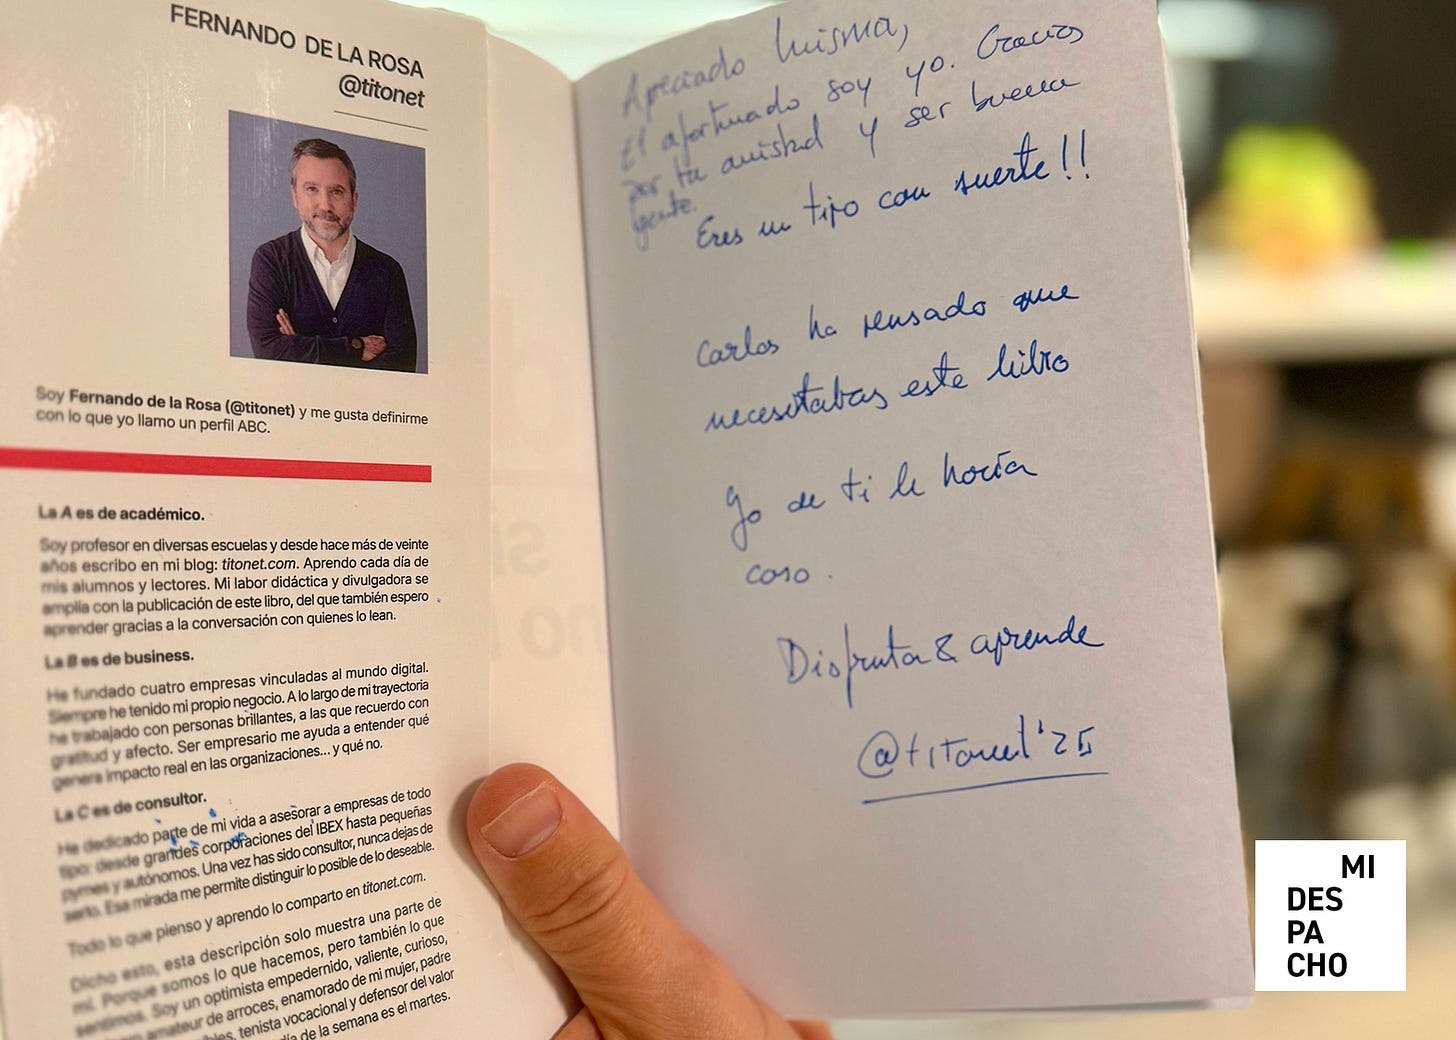 FERNANDO DE LA ROSA
@titonet
Soy Fernando de la Rosa (@titonet) y me gusta definirme
con lo que yo llamo un perfil ABC.
La A es de académico.
Soy profesor en diversas escuelas y desde hace más de veinte
años escribo en mi blog: titonet.com. Aprendo cada día de
mis alumnos y lectores. Mi labor didáctica y divulgadora se
amplía con la publicación de este libro, del que también espero
aprender gracias a la conversación con quienes lo lean.
La B es de business.
He fundado cuatro empresas vinculadas al mundo digital.
Siempre he tenido mi propio negocio. A lo largo de mi trayectoria
he trabajado con personas brillantes, a las que recuerdo con
gratitud y afecto. Ser empresario me ayuda a entender qué
genera impacto real en las organizaciones... y qué no.
La C es de consultor.
He dedicado parte de mi vida a asesorar a empresas de todo
tipo: desde grandes corporaciones del IBEX hasta pequeñas
pymes y autónomos. Una vez has sido consultor, nunca dejas de
serlo. Esa mirada me permite distinguir lo posible de lo deseable.
Todo lo que pienso y aprendo lo comparto en titonet.com.
Dicho esto, esta descripción solo muestra una parte de
mí. Porque somos lo que hacemos, pero también lo que
sentimos. Soy un optimista empedernido, valiente, curioso,
amateur de arroces, enamorado de mi mujer, padre
tenista vocacional y defensor del valor
día de la semana es el martes.
Apreciado
El afortunado soy yo. Gracias
por tu amistad y ser buena
gente.
Eres un tipo con suerte!!
Carlos ha pensado que
necesitabas este libro
Yo de ti le haría
caso.
Disfruta & aprende
@titonet '25
MI
DES
PA
CHO